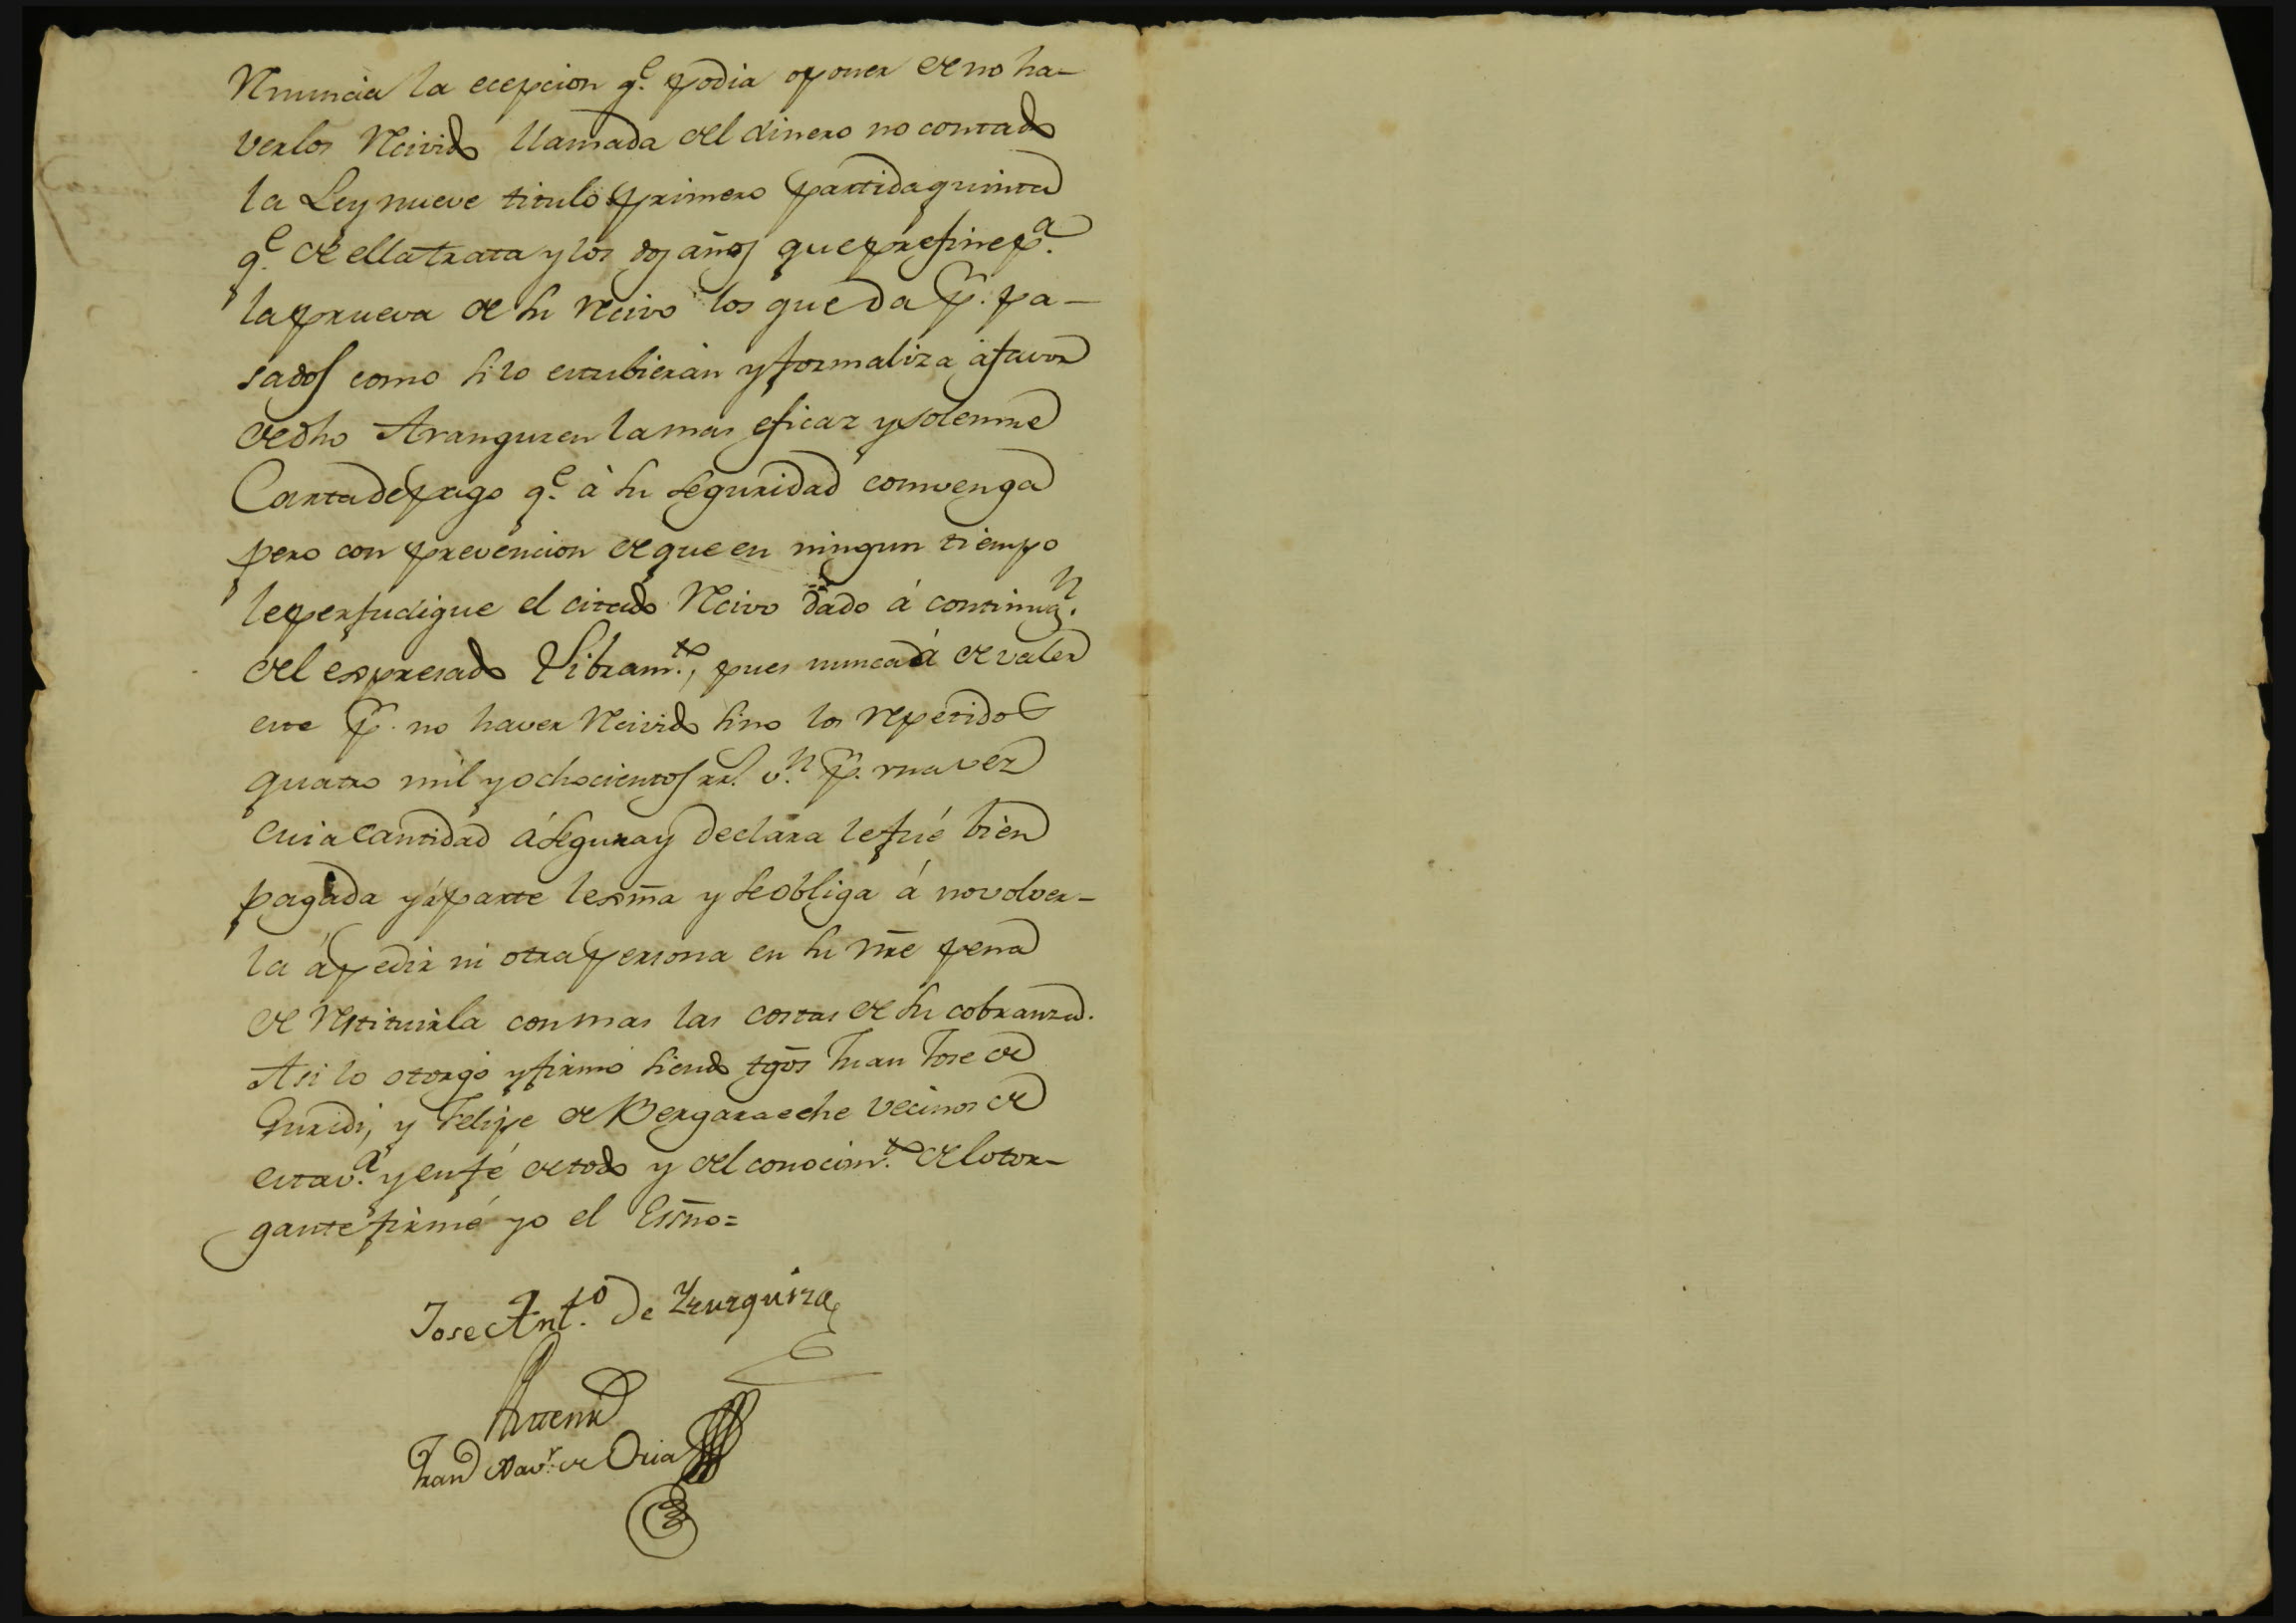 Renuncia la ecepcion q.e podia oponer de no ha-
verlos Recivido llamada del dinero no contado
la Ley nueve titulo primero partida quinta
q.e de ella trata y los dos años que prefine p.a
la prueva de su Recivo los que da p.r pa-
sados como si lo estubieran y formaliza á favor
de dho Aranguren la mas eficaz y solemne
Carta de pago q.e à su seguridad convenga
pero con prevencion de que en ningun tiempo
le perjudique el citado Recivo dado á continuaz.n
del expresado Libram.to, pues nunca á de valer
este p.r no haver Recivido sino los repetidos
quatro mil y ochocientos rr.s v.n p.r una vez
cuia cantidad ásegura y declara le fué bien
pagada y á parte lexma y se obliga á no volver-
la á pedir ni otra persona en su nre pena
de Restituirla con mas las costas de su cobranza.
Asi lo otorgó y firmó siendo tgos Juan Jose de
Guridi, y Felipe de Bergaraeche vecinos de
esta v.a y en fé de todo y del conocim.to del otor-
gante firmé yo el Essno=
Jose Ant.o de Yrurquiza
Ante mi
Fran Xav.r de Oria